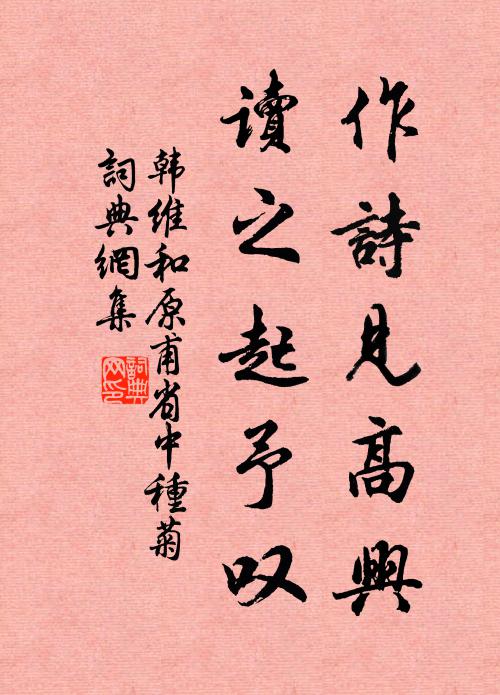 作詩見高興
读之起予叹
韩维和原甫省中種菊
詞典網集
詞典网印